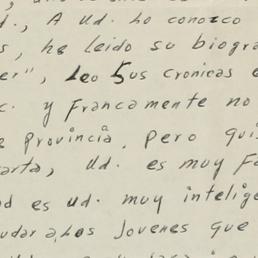 d., A Ud. lo conozco
s, he leido su biogra
er", Leo Sus cronicas
c. y Francamente no
provincia, pero qui
arta, Ud. es muy Fa
ad es ud. muy intelige
udar a los Jovenes que